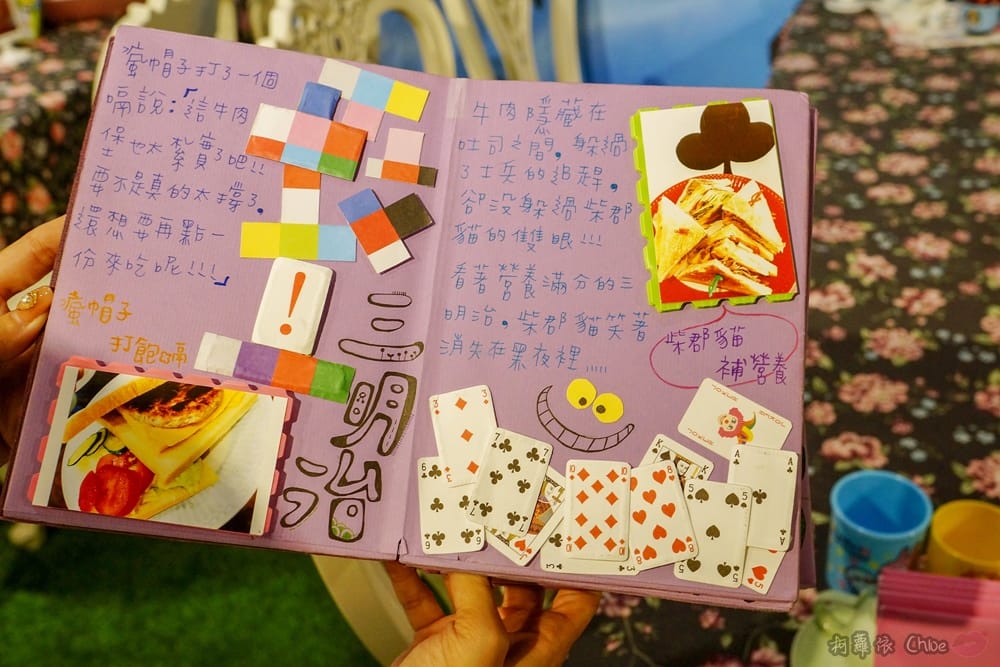 瘋帽子打了一個
嗝說:「這牛肉
堡也太紮實了吧!!
要不是真的太撐了,
還想要再點一
份來吃呢!!!」
瘋帽子
打飽嗝
!
三明治
牛肉隱藏在
吐司之間,躲過
了士兵的追趕,
卻沒躲過柴郡
貓的雙眼!!!
看著營養滿分的三
明治,柴郡貓笑著
消失在黑夜裡.....
柴郡貓
補營養
3
3
6
6
7
7
J
10
10
10
10
8
8
K
K
5
5
A
A
3
5
JOKER
JOKER
柯蘿依 Chloe